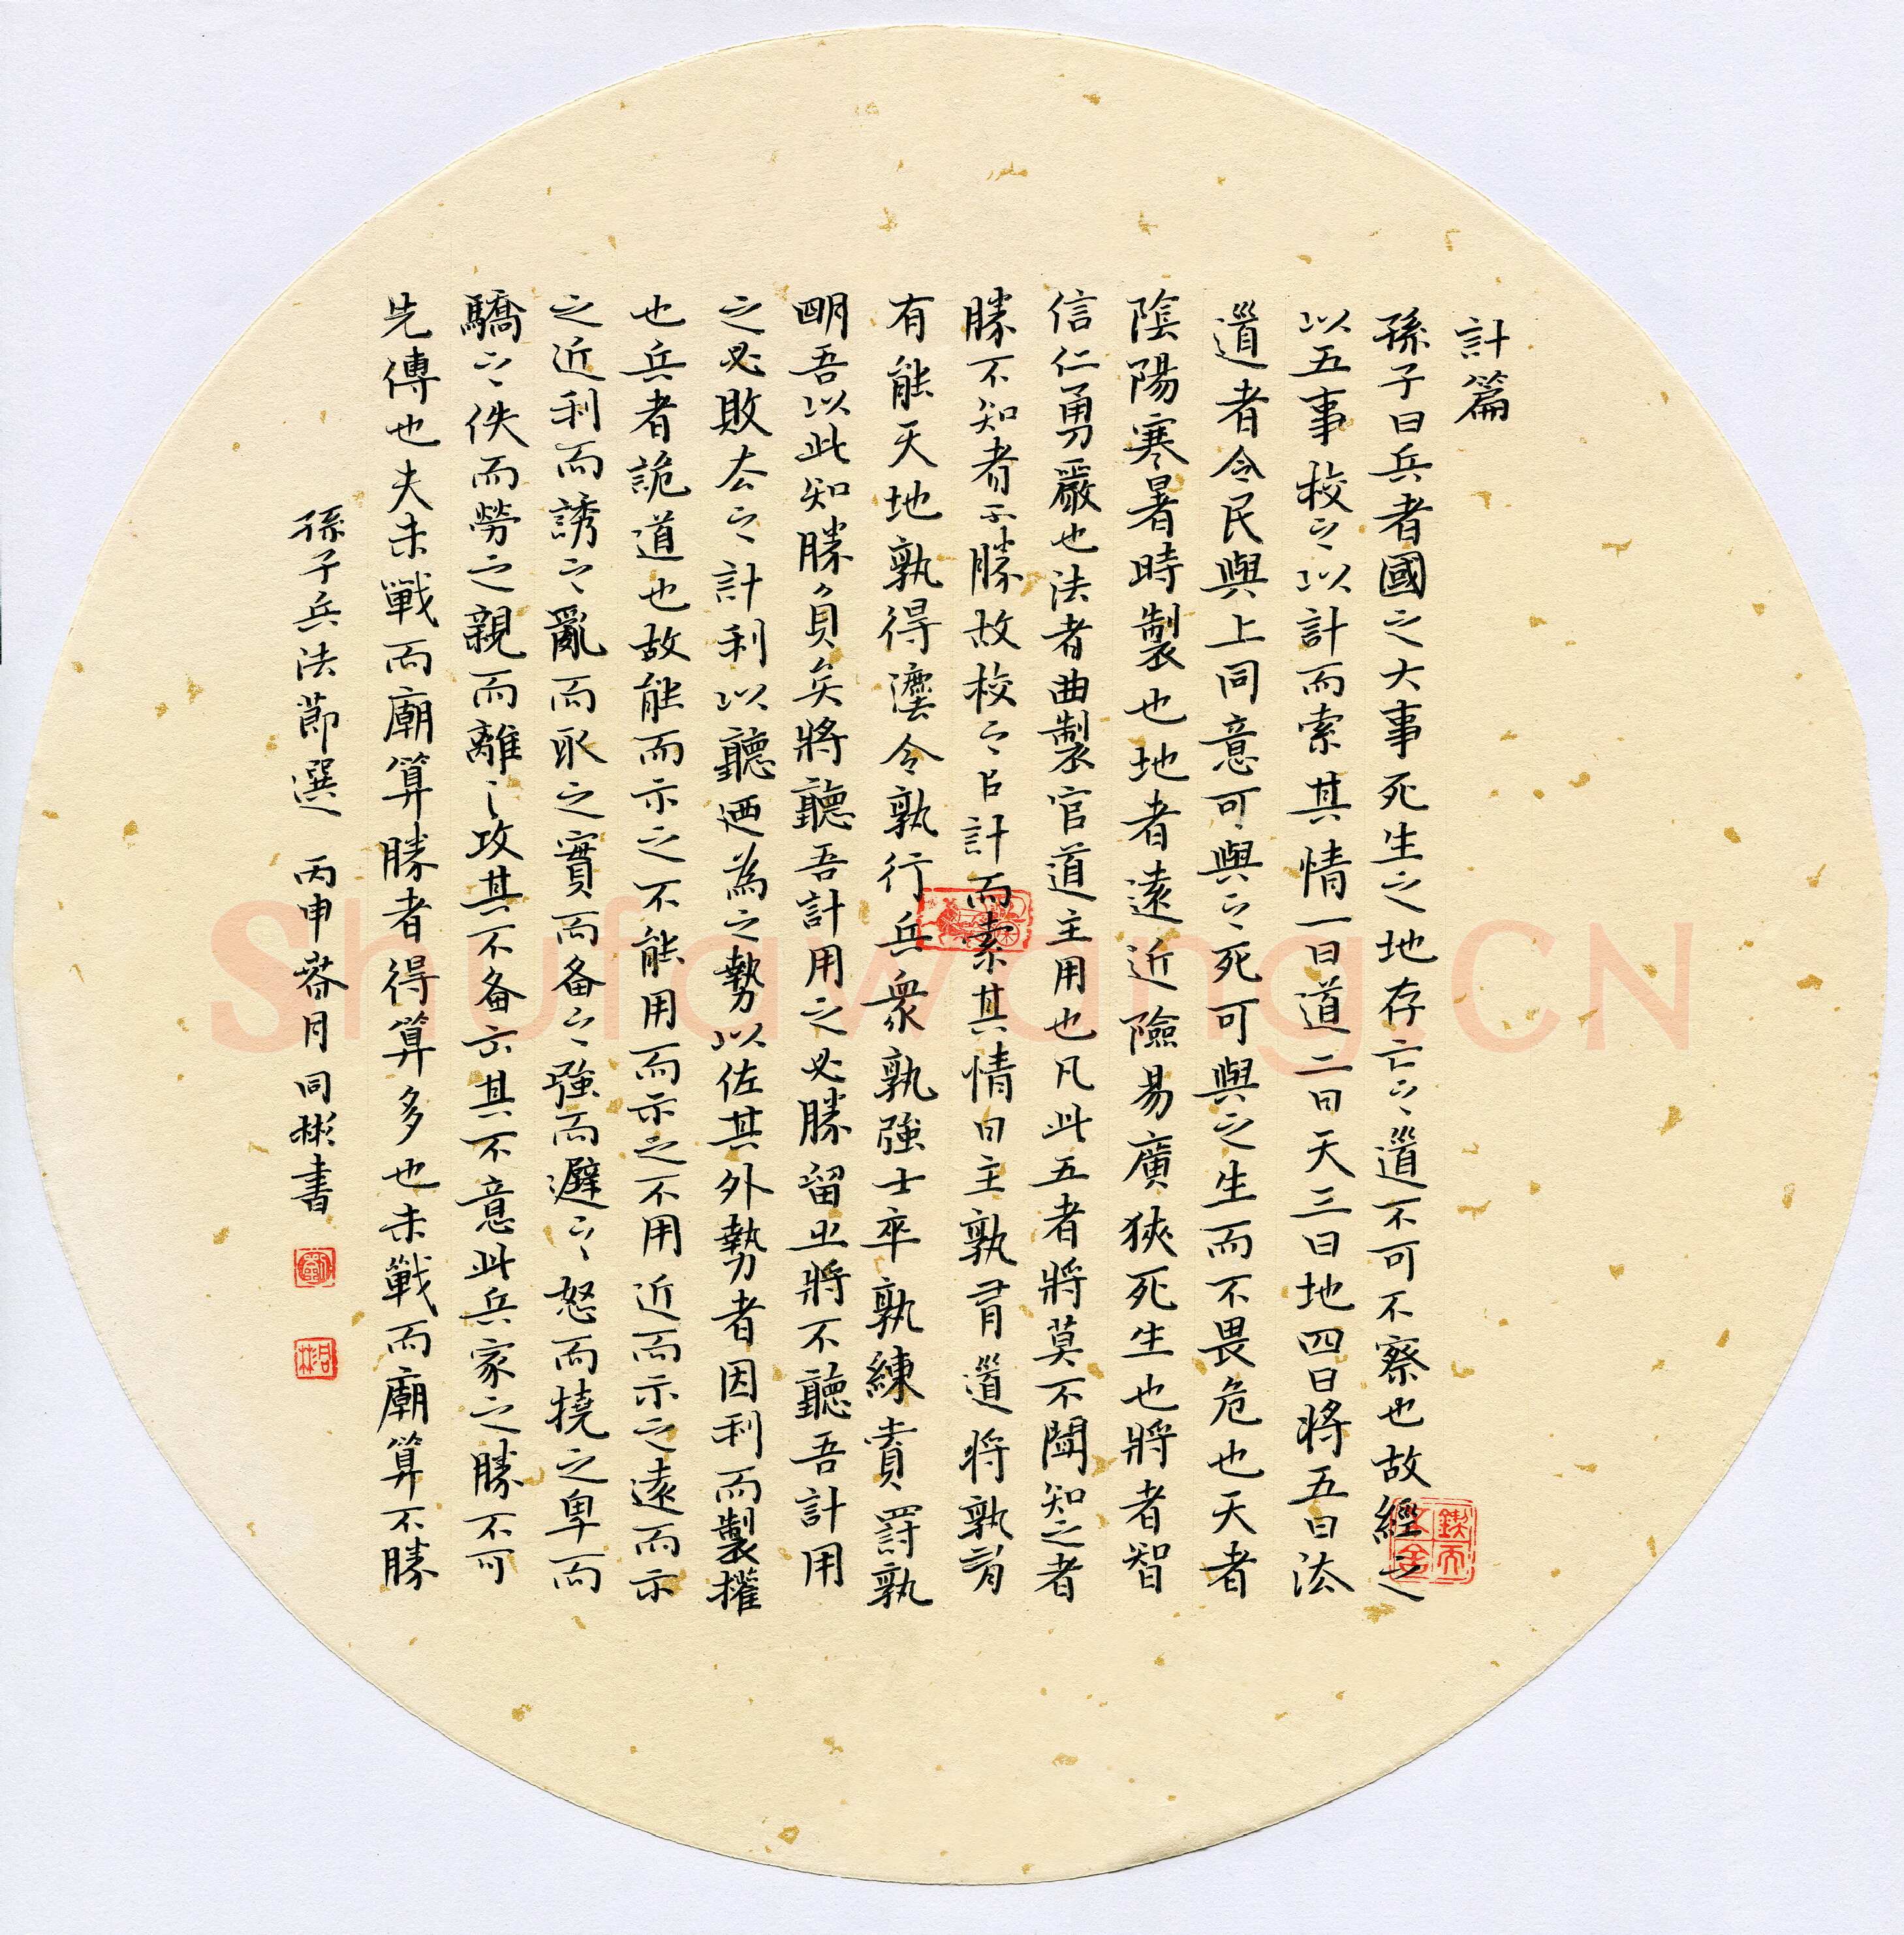 計篇
孫子曰兵者國之大事死生之地存亡之道不可不察也故經之
以五事校之以計而索其情一曰道二曰天三曰地四曰將五曰法
道者令民與上同意可與之死可與之生而不畏危也天者
陰陽寒暑時製也地者遠近險易廣狹死生也將者智
信仁勇嚴也法者曲製官道主用也凡此五者將莫不聞知之者
勝不知者不勝故校之以計而索其情曰主孰有道將孰有
有能天地孰得灋令孰行兵衆孰強士卒孰練賞罰孰
明吾以此知勝負矣將聽吾計用之必勝留之將不聽吾計用
之必敗去之計利以聽迺為之勢以佐其外勢者因利而製權
也兵者詭道也故能而示之不能用而示之不用近而示之遠而示
之近利而誘之亂而取之實而备之強而避之怒而撓之卑而
驕之佚而勞之親而離之攻其不备出其不意此兵家之勝不可
先傳也夫未戰而廟算勝者得算多也未戰而廟算不勝
孫子兵法節選 丙申春月同彬書
Shufawang.CN